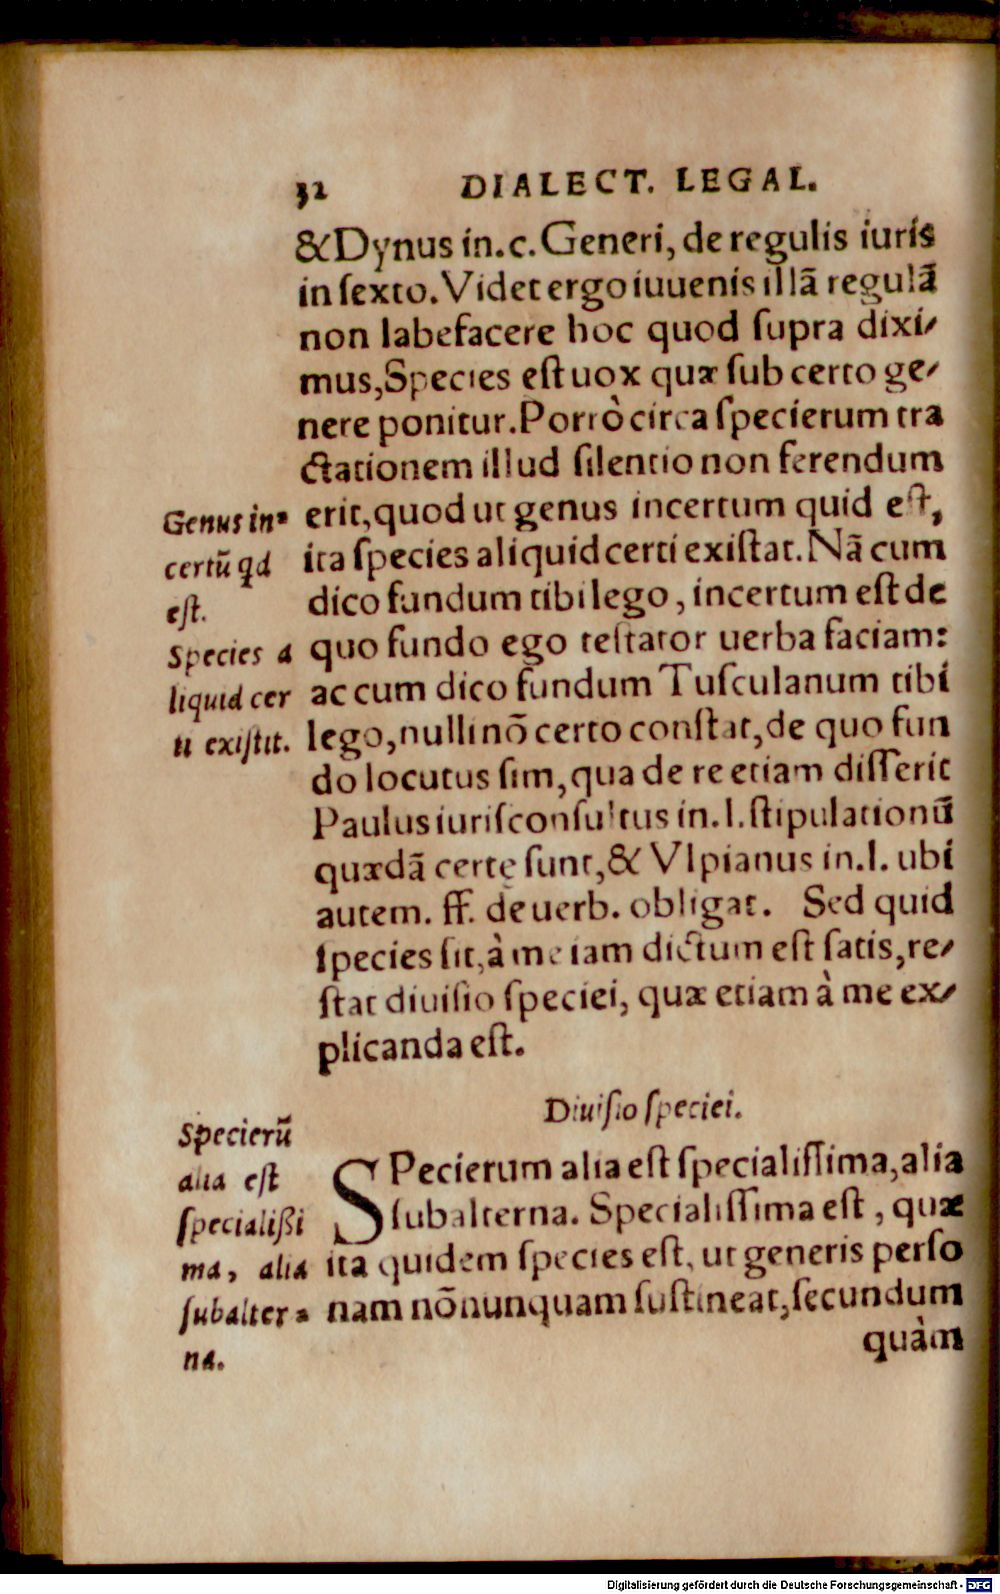 32 DIALECT. LEGAL.
&Dynus in.c.Generi, de regulis iuris
in ſexto.Videt ergo iuuenis illā regulā
non labefacere hoc quod ſupra dixi-
mus,Species eſt uox quæ ſub certo ge-
nere ponitur.Porrò circa ſpecierum tra
ctationem illud ſilentio non ferendum
erit,quod ut genus incertum quid eſt,
ita ſpecies aliquid certi exiſtat.Nā cum
dico fundum tibi lego, incertum eſt de
quo fundo ego teſtator uerba faciam:
ac cum dico fundum Tuſculanum tibi
lego,nulli nō certo conſtat,de quo fun
do locutus ſim,qua de re etiam diſſerit
Paulus iuriſconſultus in.l.ſtipulationū
quædā certę ſunt,& Vlpianus in.l. ubi
autem. ff. de uerb. obligat. Sed quid
ſpecies ſit,à me iam dictum eſt ſatis,re-
ſtat diuiſio ſpeciei, quæ etiam à me ex-
plicanda eſt.
Genus in-
certū qd
eſt.
Species a
liquid cer
ti exiſtit.
Diuiſio ſpeciei.
SPecierum alia eſt ſpecialiſſima,alia
ſubalterna. Specialiſſima eſt, quæ
ita quidem ſpecies eſt, ut generis perſo
nam nōnunquam ſuſtineat,ſecundum
quàm
Specierū
alia eſt
ſpecialißi
ma, alia
ſubalter-
na.
Digitalisierung gefördert durch die Deutsche Forschungsgemeinschaft - DFG